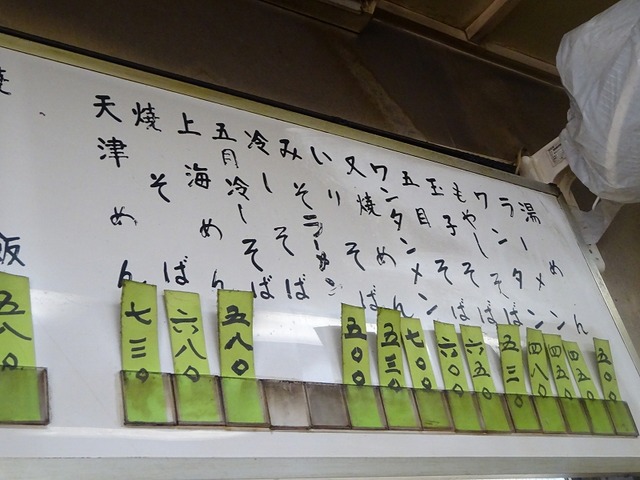 湯めん
ラーメン
ワンタン
もやしそば
玉子そば
五目そば
ワンタンメン
叉焼めん
いりそば
みそラーメン
冷しそば
五目冷しそば
上海めん
焼そば
天津めん
焼
飯
五〇〇
四五〇
四八〇
五三〇
六五〇
六〇〇
七〇〇
五三〇
五〇〇
五八〇
六八〇
七三〇
五八〇